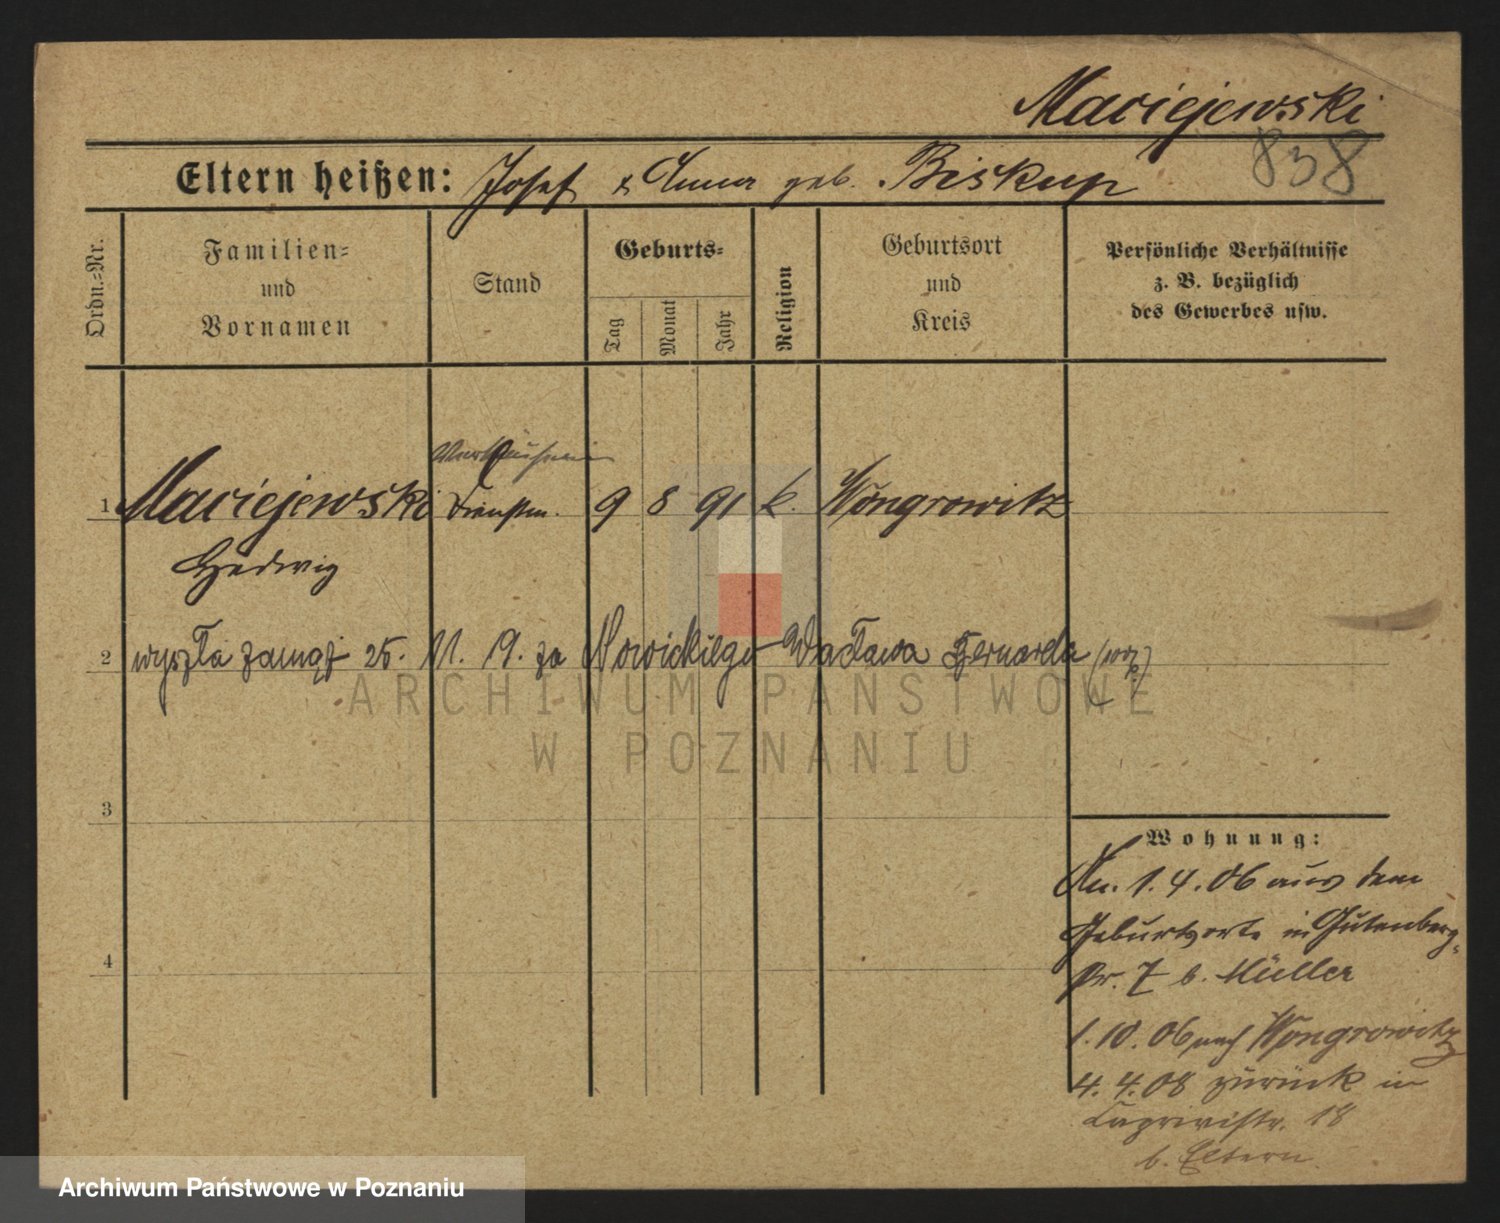 Maciejewski
838
Eltern heißen: Josef & Anna geb. Biskup
Ordn.-Nr.
Familien-
und
Vornamen
Stand
Geburts-
Tag
Monat
Jahr
Religion
Geburtsort
und
Kreis
Persönliche Verhältnisse
z. B. bezüglich
des Gewerbes usw.
Verkäuferin
1 Maciejewski Dienstm. 9 8 91 k. Wongrowitz
Hedwig
2 wyszła zamąż 25. 11. 19. za Nowickiego Wacława Bernarda
ARCHIWUM PAŃSTWOWE
W POZNANIU
3
4
Wohnung:
An. 1.4.06 aus dem
Geburtsorte in Gutenberg-
str. 7 b. Müller
1.10.06 nach Wongrowitz
4.4.08 zurück in
Caprivistr. 18
b. Eltern.
Archiwum Państwowe w Poznaniu